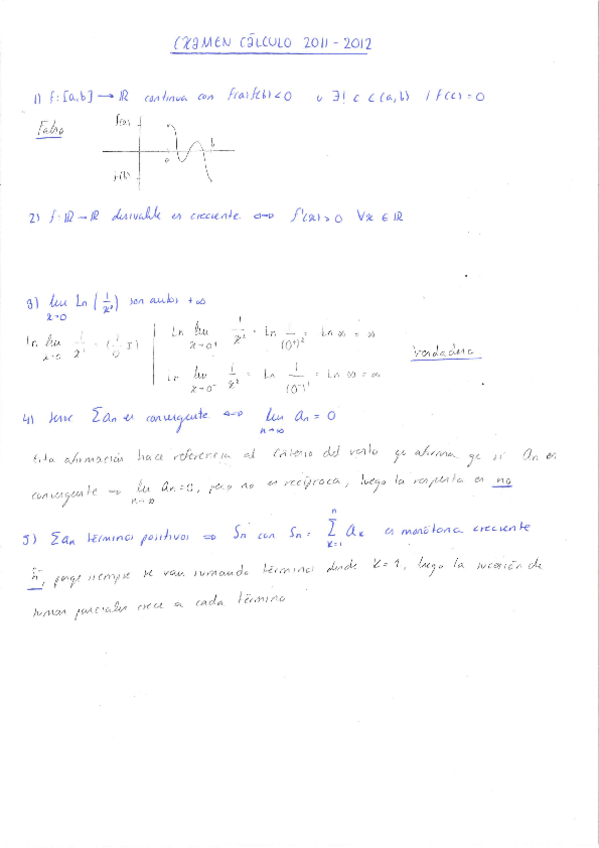 EXAMEN CÁLCULO 2011 - 2012
1) f: [a,b] → ℝ continua con f(a)f(b)<0 ∃! c ∈ (a,b) / f(c) = 0
Falso
f(a)
a b
f(b)
2) f: ℝ → ℝ derivable es creciente ⇔ f'(x)>0 ∀x ∈ ℝ
3) lim Ln (1/x²) son ambos +∞
x→0
Ln lim x→0 1/x² | Ln lim x→0⁺ 1/x² = Ln 1/(0⁺)² = Ln ∞ = ∞
Verdadero
Ln lim x→0⁻ 1/x² = Ln 1/(0⁻)² = Ln ∞ = ∞
4) serie Σan es convergente ⇔ lim n→∞ an = 0
Esta afirmación hace referencia al criterio del resto qe afirma qe si an es
convergente ⇒ lim n→∞ an=0, pero no es recíproca, luego la respuesta es no
5) Σan términos positivos ⇒ Sn con Sn = Σ k=1 n ak es monótona creciente
Sí, porqe siempre se van sumando términos desde k=1, luego la sucesión de
sumas parciales crece a cada término